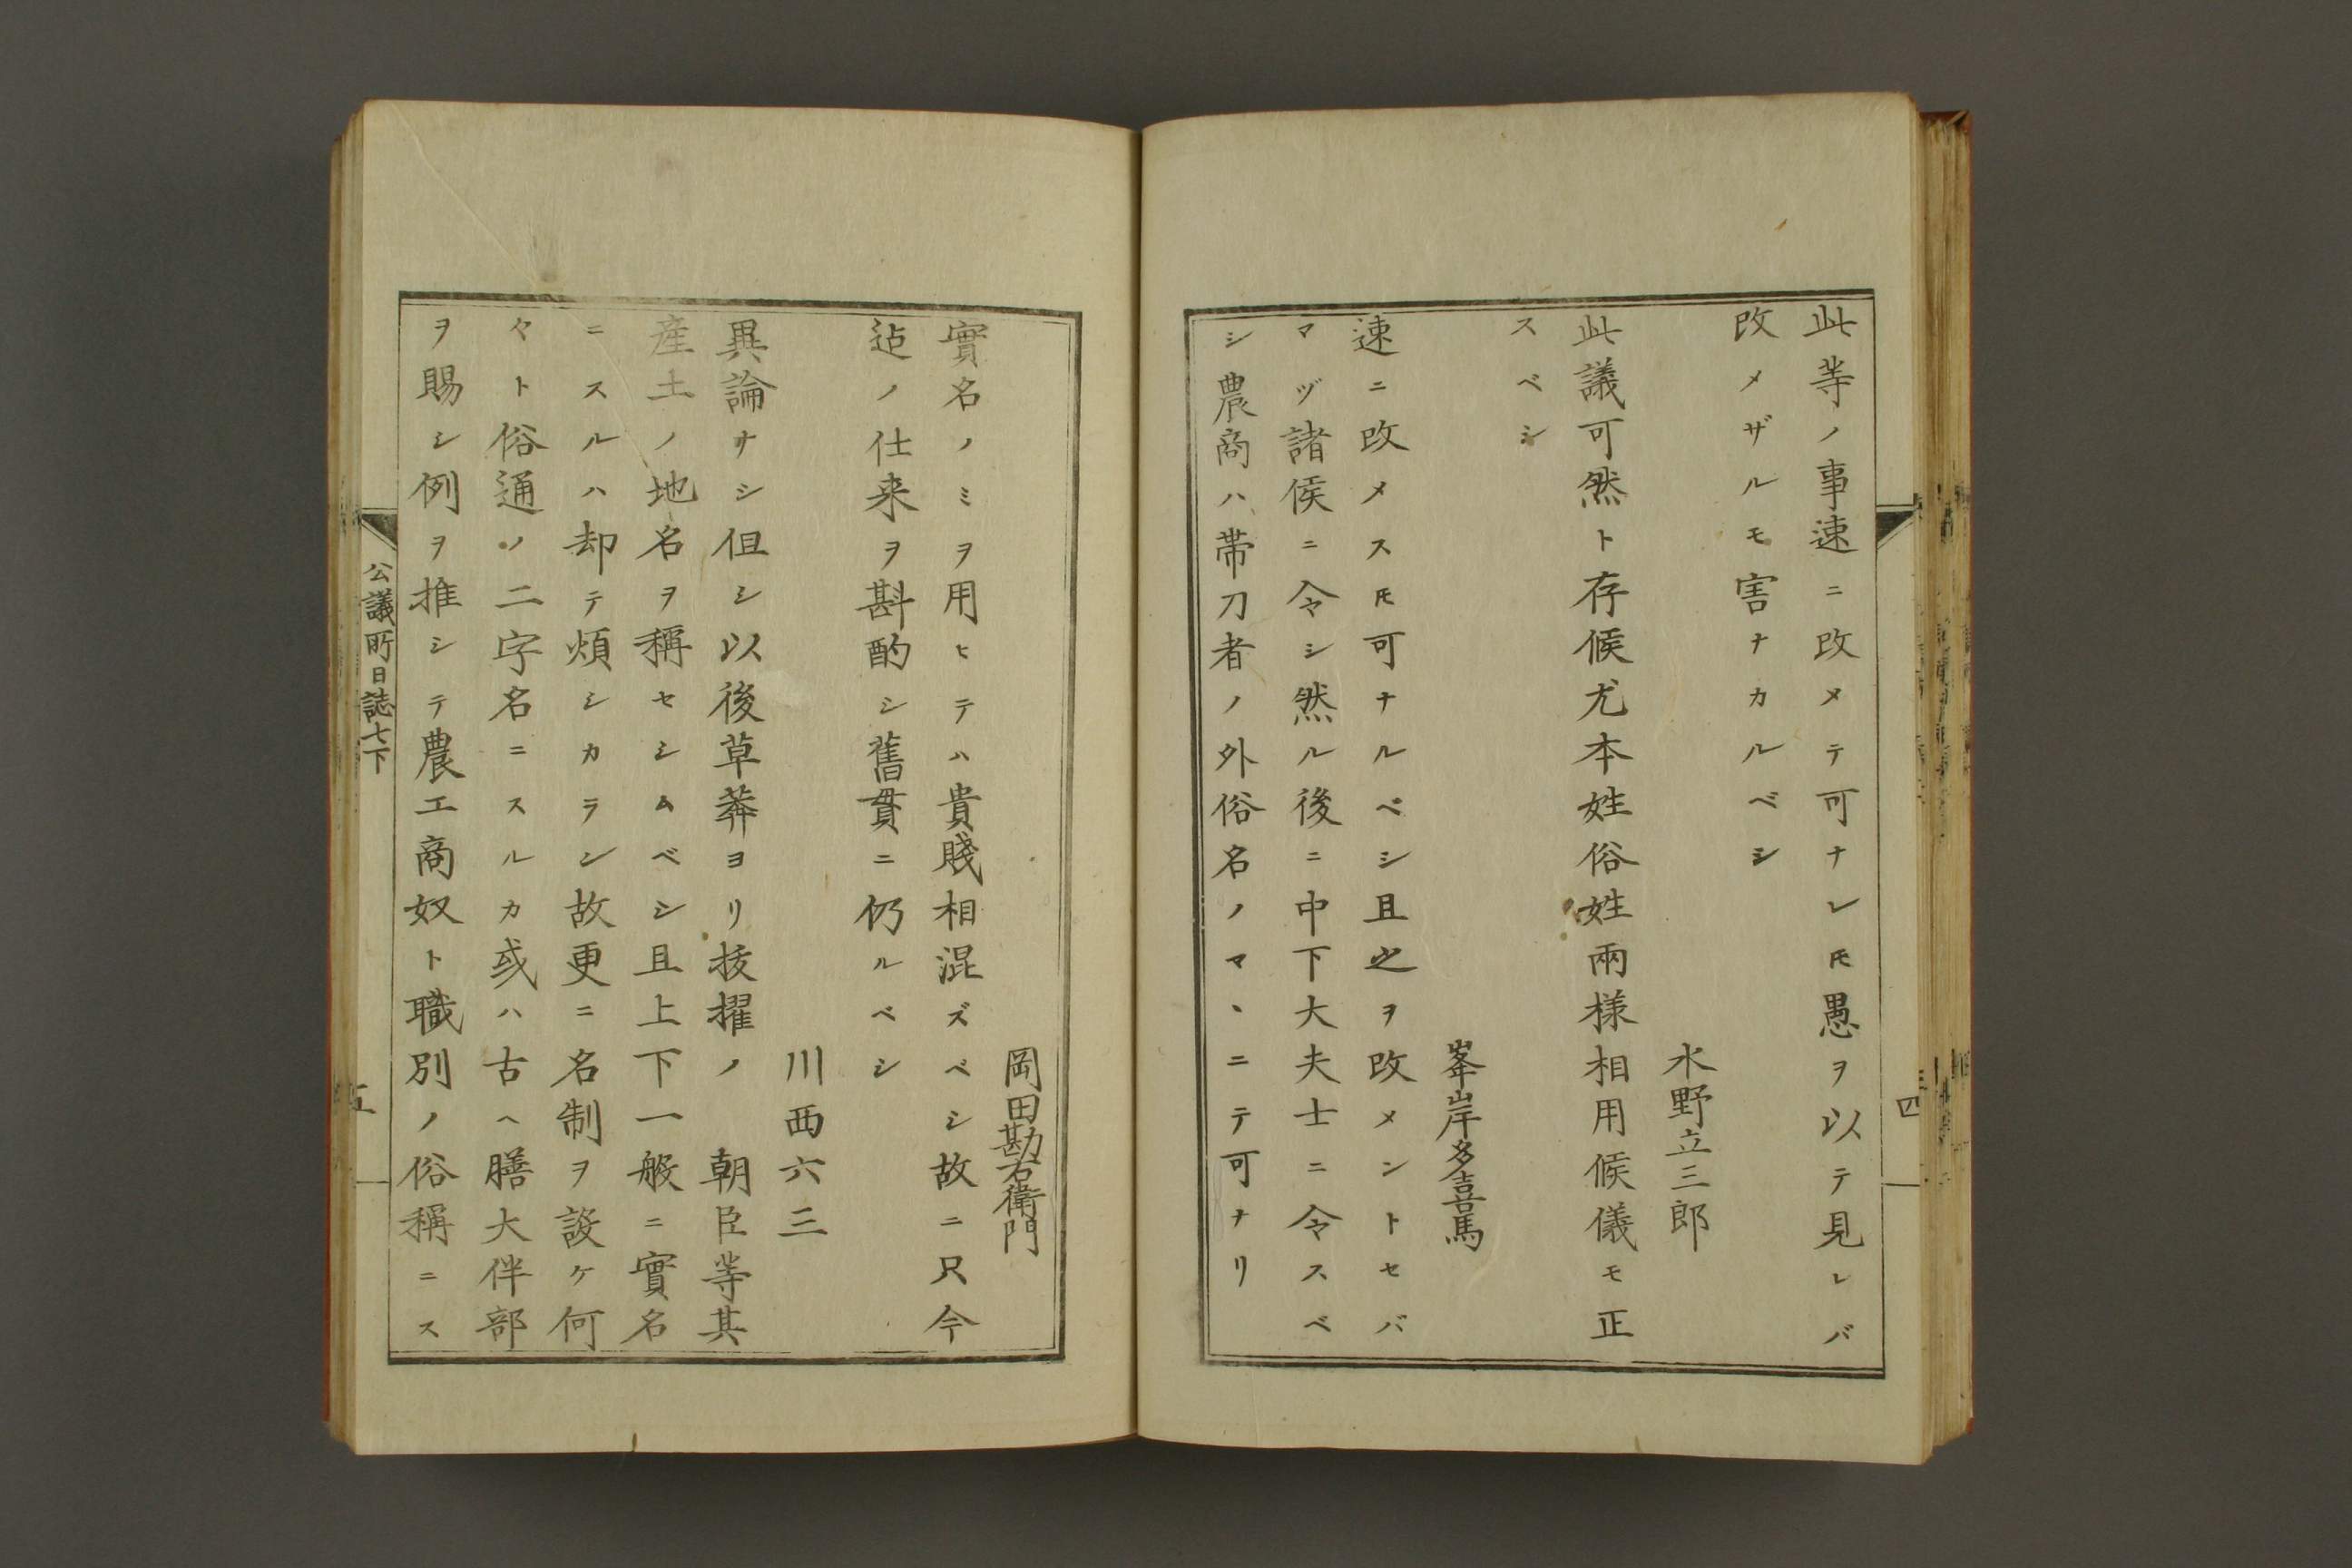 此等ノ事速ニ改メテ可ナレ𪜈愚ヲ以テ見レバ
改メザルモ害ナカルベシ
水野立三郎
此議可然ト存候尤本姓俗姓兩様相用候儀モ正
スベシ
峯岸多喜馬
速ニ改メス𪜈可ナルベシ且之ヲ改メントセバ
マヅ諸侯ニ令シ然ル後ニ中下大夫士ニ令スベ
シ農商ハ帯刀者ノ外俗名ノマヽニテ可ナリ
四
岡田勘右衛門
實名ノミヲ用ヒテハ貴賤相混ズベシ故ニ只今
迠ノ仕来ヲ斟酌シ舊貫ニ仍ルベシ
川西六三
異論ナシ但シ以後草莽ヨリ抜擢ノ 朝臣等其
産土ノ地名ヲ稱セシムベシ且上下一般ニ實名
ニスルハ却テ煩シカラン故更ニ名制ヲ設ケ何
々ト俗通ノ二字名ニスルカ或ハ古ヘ膳大伴部
ヲ賜シ例ヲ推シテ農工商奴ト職別ノ俗稱ニス
公議所日誌七下
五